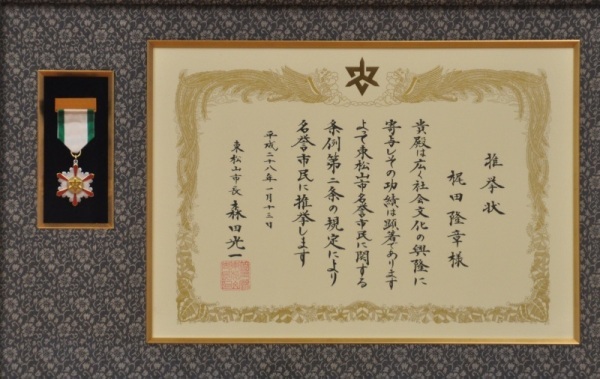 推挙状
梶田隆章様
貴殿は広く社会文化の興隆に
寄与しその功績は顕著であります
よって東松山市名誉市民に関する
条例第二条の規定により
名誉市民に推挙します
平成二十八年一月十三日
東松山市長 森田光一